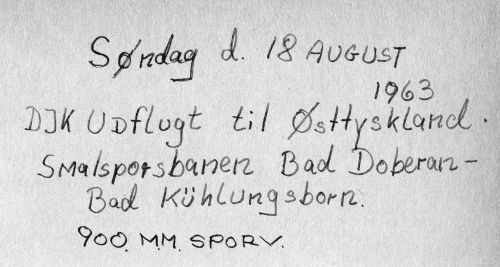 Søndag d. 18 AUGUST
1963
DJK UDflugt til Østtyskland.
Smalsporsbanen Bad Doberan-
Bad Kühlungsborn.
900. M.M. SPORV.